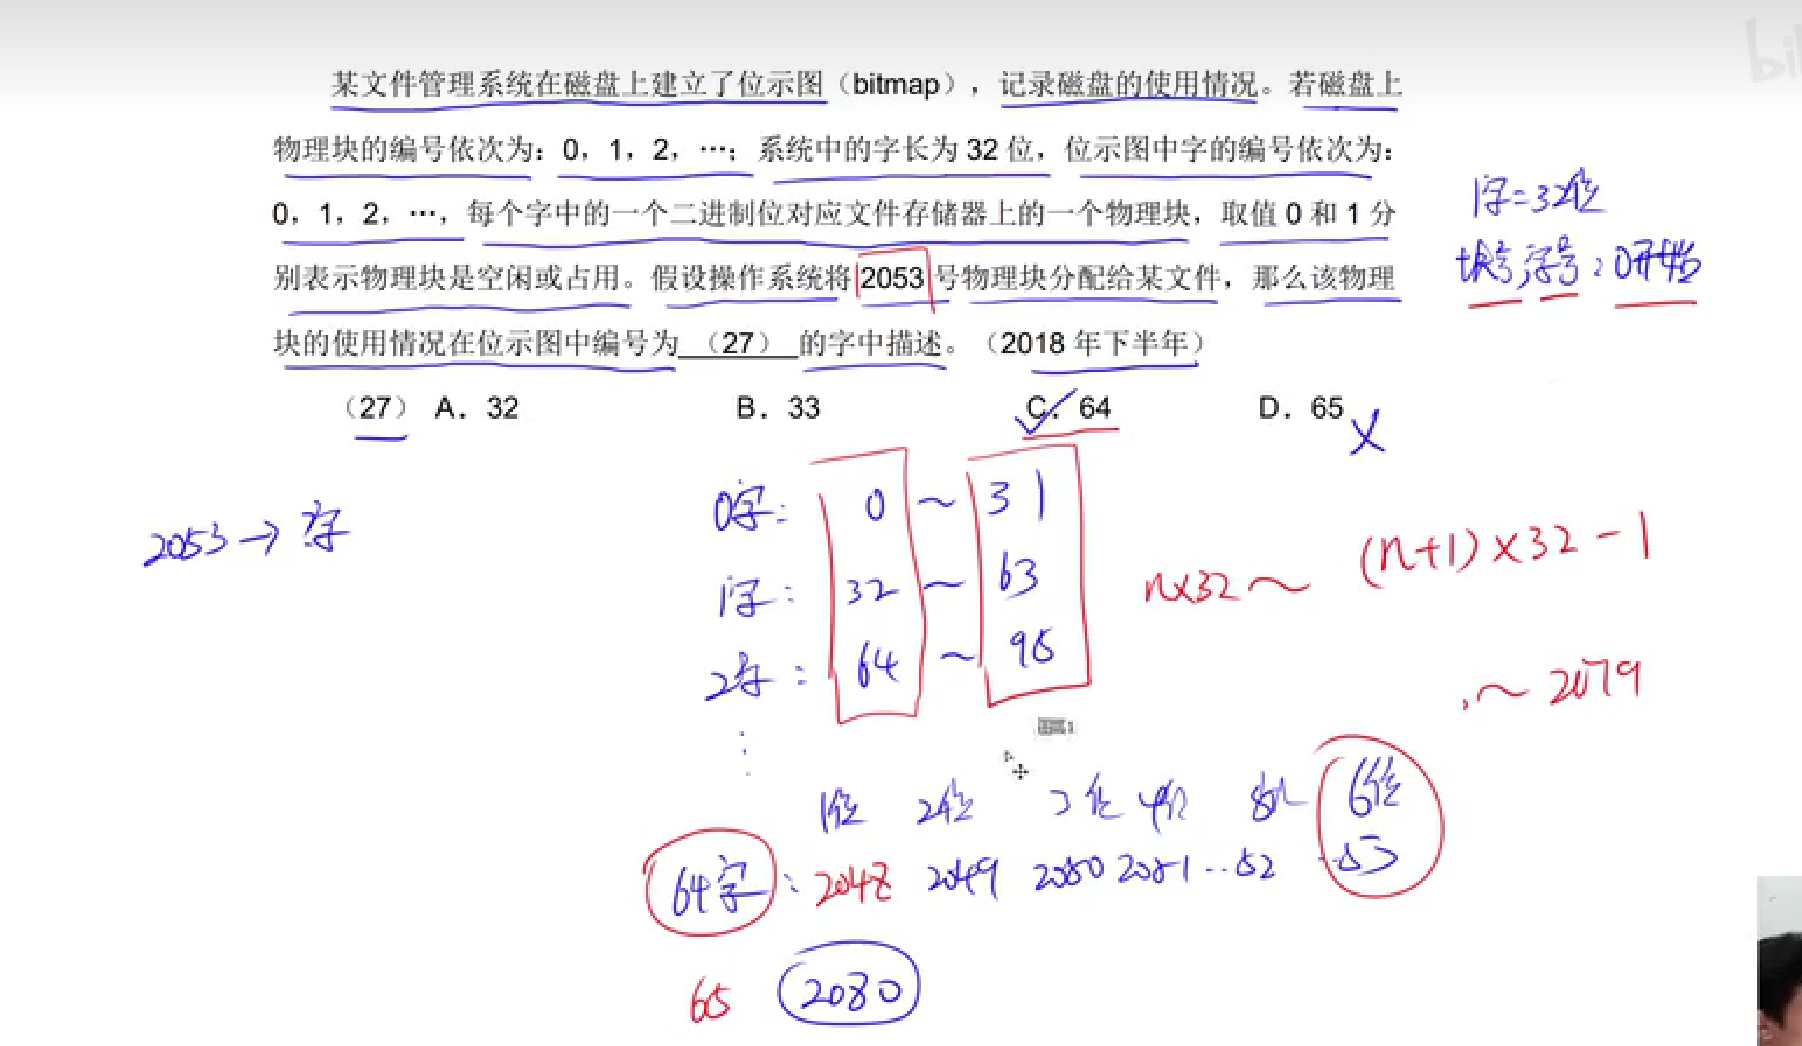 bi
某文件管理系统在磁盘上建立了位示图（bitmap），记录磁盘的使用情况。若磁盘上
物理块的编号依次为：0，1，2，…；系统中的字长为 32 位，位示图中字的编号依次为：
0，1，2，…，每个字中的一个二进制位对应文件存储器上的一个物理块，取值 0 和 1 分
别表示物理块是空闲或占用。假设操作系统将 2053 号物理块分配给某文件，那么该物理
块的使用情况在位示图中编号为 （27） 的字中描述。（2018 年下半年）
1字=32位
块号,字号：0开始
（27） A．32 B．33 C．64 D．65
2053→ 字
0字： 0 ～ 31
1字： 32 ～ 63
2字： 64 ～ 95
n×32～ (n+1)×32-1
～ 2079
⋮
1位 2位 3位 4位 6位
64字： 2048 2049 2050 2051 ‥52 ‥53
65 2080